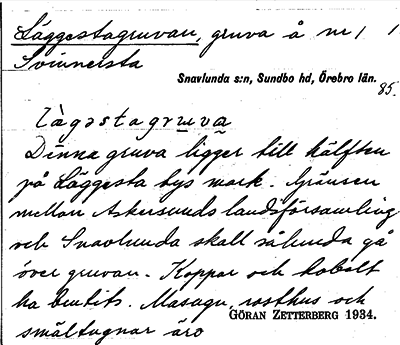 Läggestagruvan, gruva å nr 1 1
Svinnersta
Snavlunda s:n, Sundbo hd, Örebro län.
85.
lägəstagruva
Denna gruva ligger till hälften
på Läggesta bys mark. Gränsen
mellan Askersunds landsförsamling
och Snavlunda skall sålunda gå
över gruvan. Koppar och kobolt
ha brutits. Masugn, rosthus och
GÖRAN ZETTERBERG 1934.
smältugnar äro